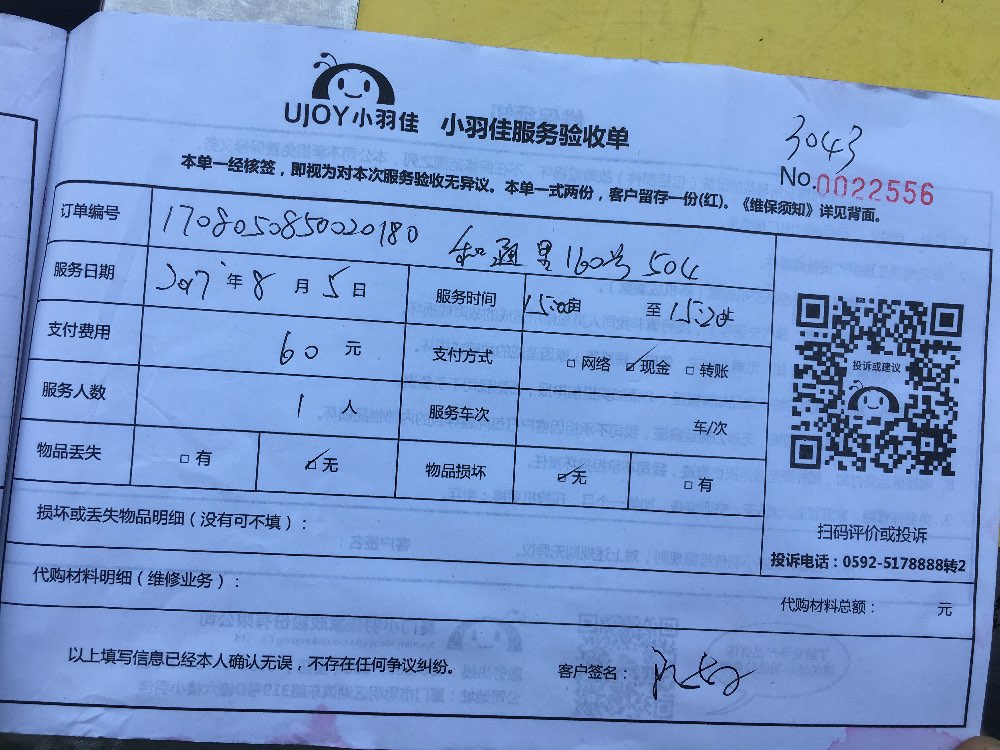 UJOY小羽佳 小羽佳服务验收单
3043
No.0022556
本单一经核签，即视为对本次服务验收无异议。本单一式两份，客户留存一份(红)。《维保须知》详见背面。
订单编号 1708050850020180 160号504
服务日期 2017年8月5日 服务时间 15:00 至 15:20
支付费用 60 元 支付方式 □网络 ☑现金 □转账
投诉或建议
服务人数 1 人 服务车次 车/次
物品丢失 □有 ☑无 物品损坏 ☑无 □有
损坏或丢失物品明细（没有可不填）：
扫码评价或投诉
投诉电话：0592-5178888转2
代购材料明细（维修业务）：
代购材料总额： 元
以上填写信息已经本人确认无误，不存在任何争议纠纷。 客户签名：